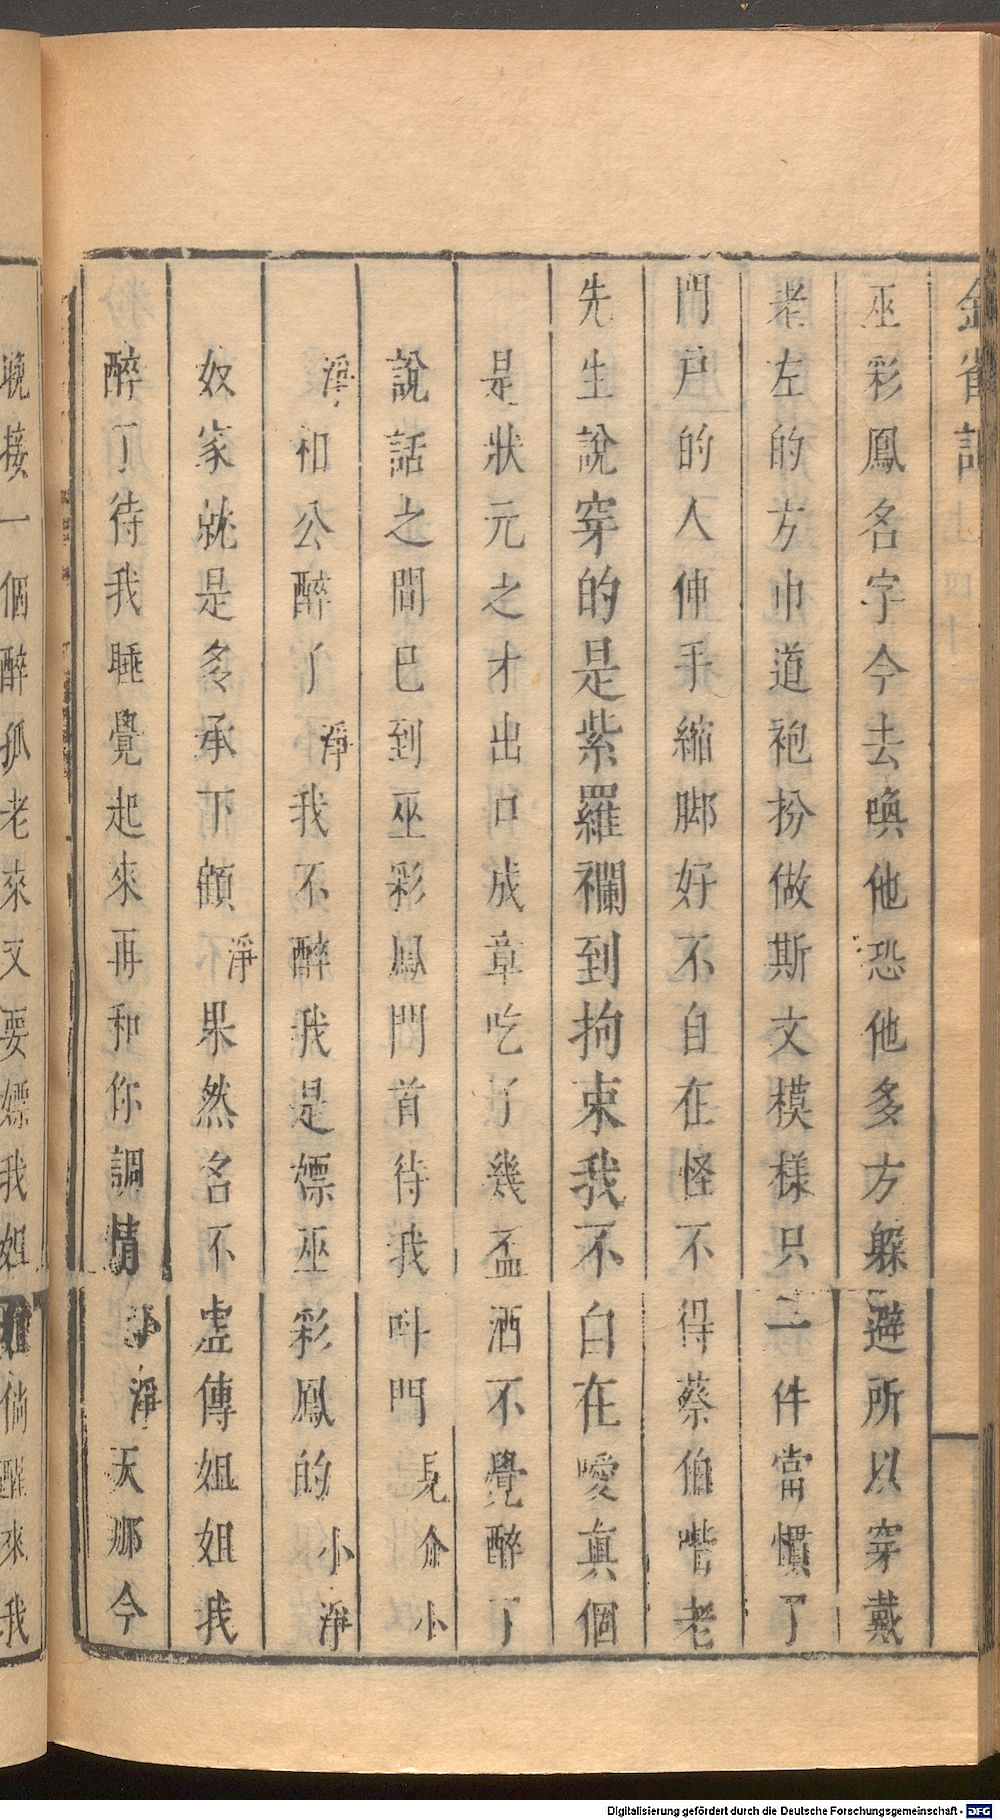 金雀記
巫彩鳳名字今去喚他恐他多方躲避所以穿戴
老左的方巾道袍扮做斯文模樣只二件當慣了
門户的人伸手縮脚好不自在怪不得蔡伯喈老
先生說穿的是紫羅襴到拘束我不自在噯真個
是狀元之才出口成章吃了幾盃酒不覺醉了
說話之間已到巫彩鳳門首待我呌門見介小
淨相公醉了淨我不醉我是嫖巫彩鳳的小淨
奴家就是多承下顧淨果然名不虛傳姐姐我
醉了待我睡覺起來再和你調情小淨天那今
晚接一個醉孤老來又要嫖我姐倘醒來我
Digitalisierung gefördert durch die Deutsche Forschungsgemeinschaft - DFG